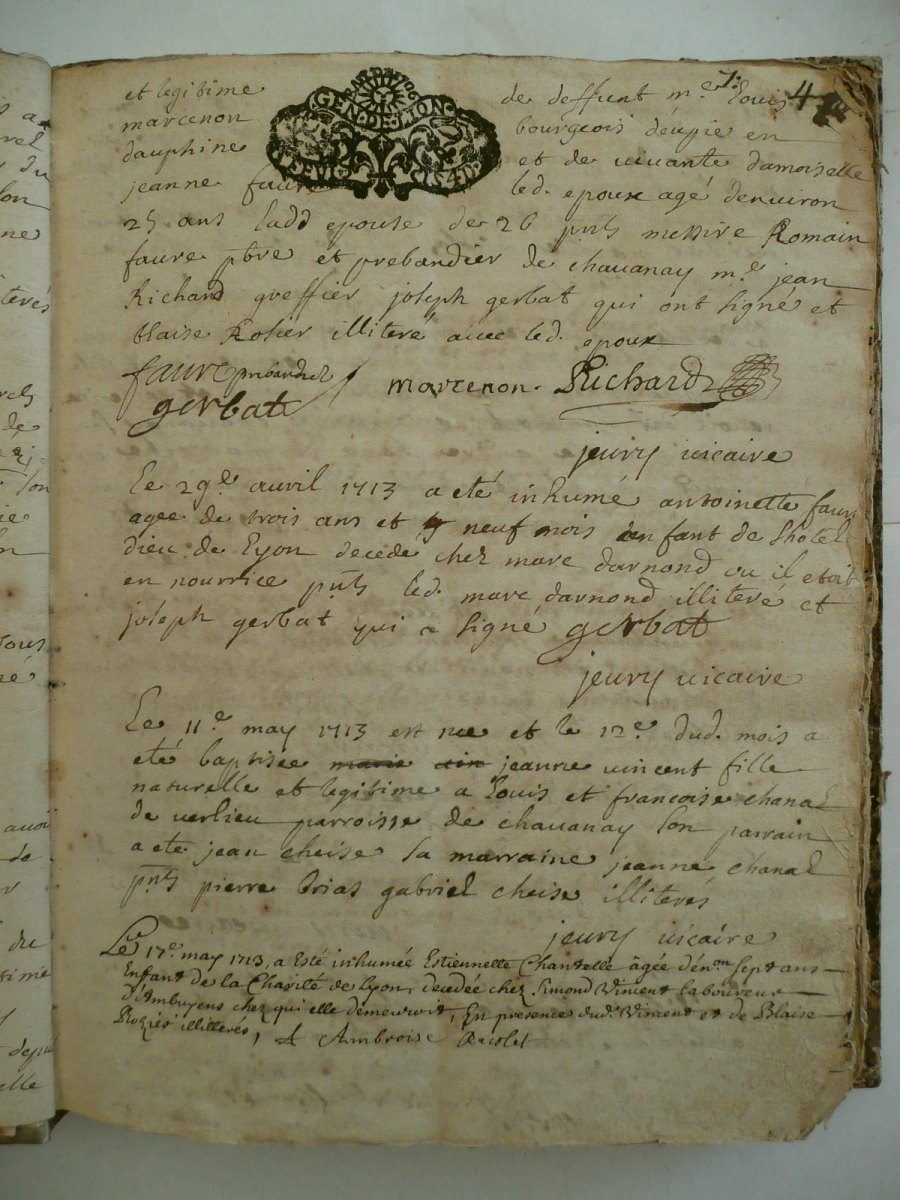 et legitime de deffunt m.e louis 4
marcenon bourgeois deupie en
dauphine et de vivante damoiselle
jeanne faure led. epoux agé denuiron
GEN·DE·LION
25 ans ladd epouse de 26 pnts messire Romain
faure pbre et prebandier de chauanay m.e jean
Richard greffier joseph gerbat qui ont signé et
blaise Rosier illiteré auec led. epoux
faure prebandier marcenon. Richard
gerbat
jeury uicaire
Le 29.e auril 1713 a eté inhumé antoinette faure
agee de trois ans et neuf mois enfant de lhotel
dieu de Lyon decedé chez marc darnond ou il etoit
en nourrice pnts led. marc darnond illiteré et
joseph gerbat qui a signé gerbat
jeury uicaire
Le 11.e may 1713 est nee et le 12.e dud. mois a
eté baptisée marie jeanne uincent fille
naturelle et legitime a louis et francoise chanal
de uerlieu parroisse de chauanay son parrain
a eté jean cheise sa marraine jeanne chanal
pnts pierre brias gabriel cheise illiterés
jeury uicaire
Le 17.e may 1713, a Esté inhumée Estiennette Chantelle âgée d'én.on sept ans
Enfant de la Charité de Lyon, decedée chez Simond Vincent laboureur
d'Ambuyens chez qui elle demeuroit, En presence dud. Vincent et de Blaise
Roziés illiterés, f Ambroise Recolet